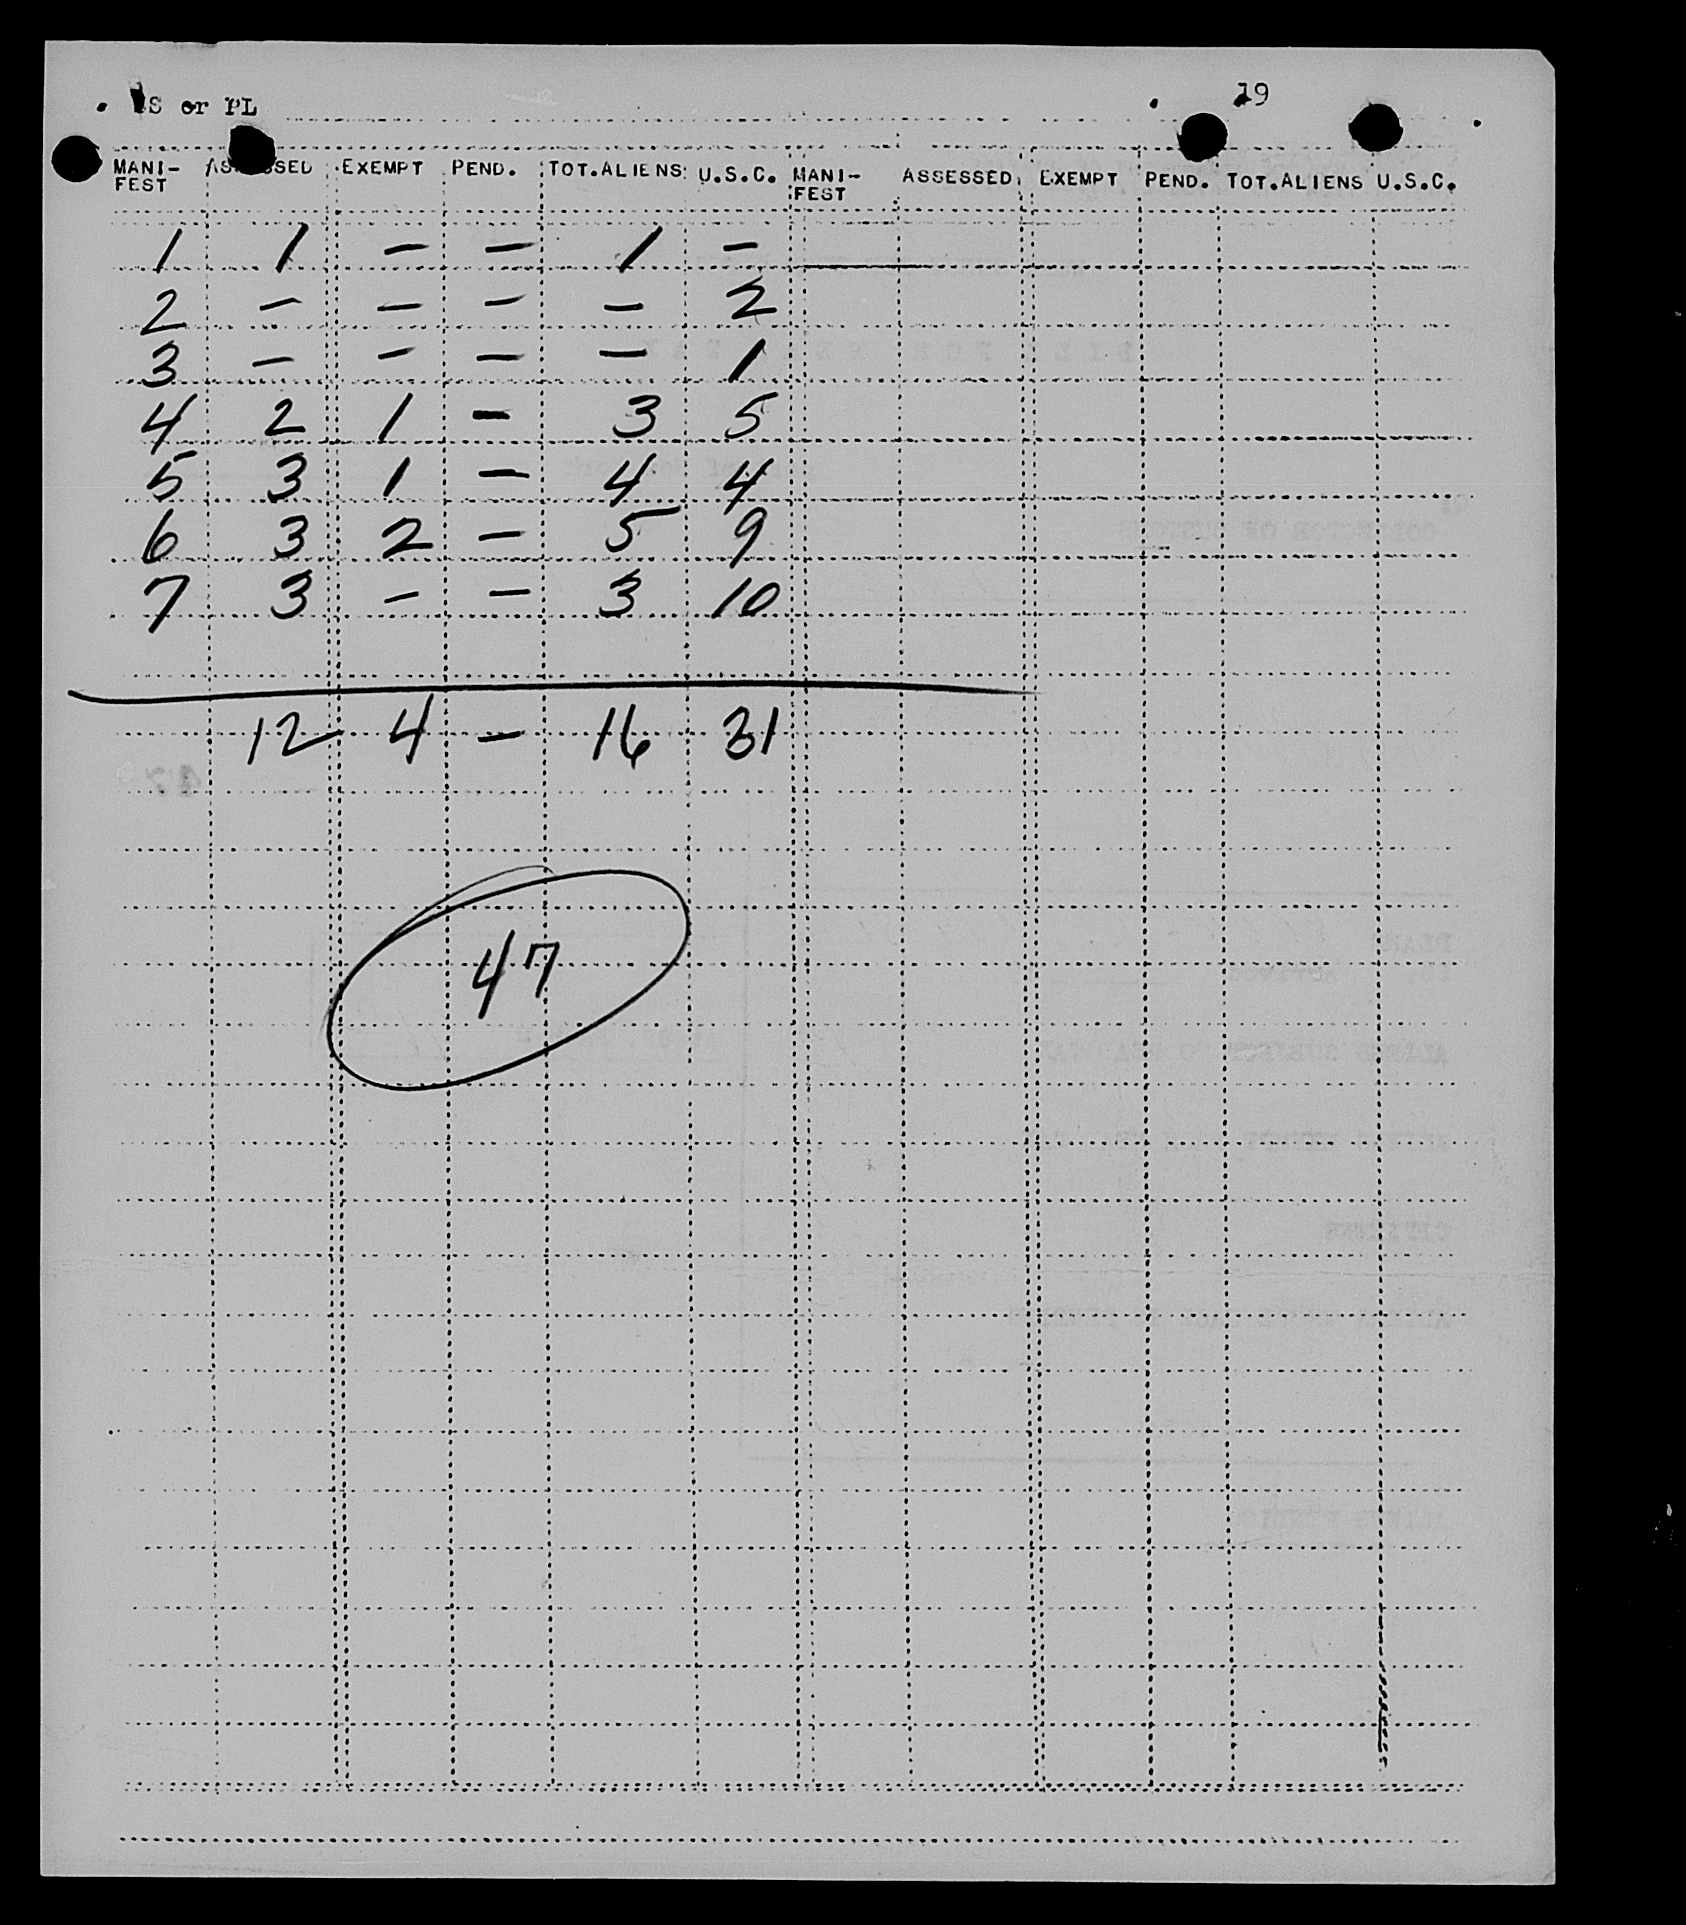 SS or PL 19
MANI- ASSESSED EXEMPT PEND. TOT.ALIENS U.S.C. MANI- ASSESSED EXEMPT PEND. TOT.ALIENS U.S.C.
FEST FEST
1 1 - - 1 -
2 - - - - 2
3 - - - - 1
4 2 1 - 3 5
5 3 1 - 4 4
6 3 2 - 5 9
7 3 - - 3 10
12 4 - 16 31
47